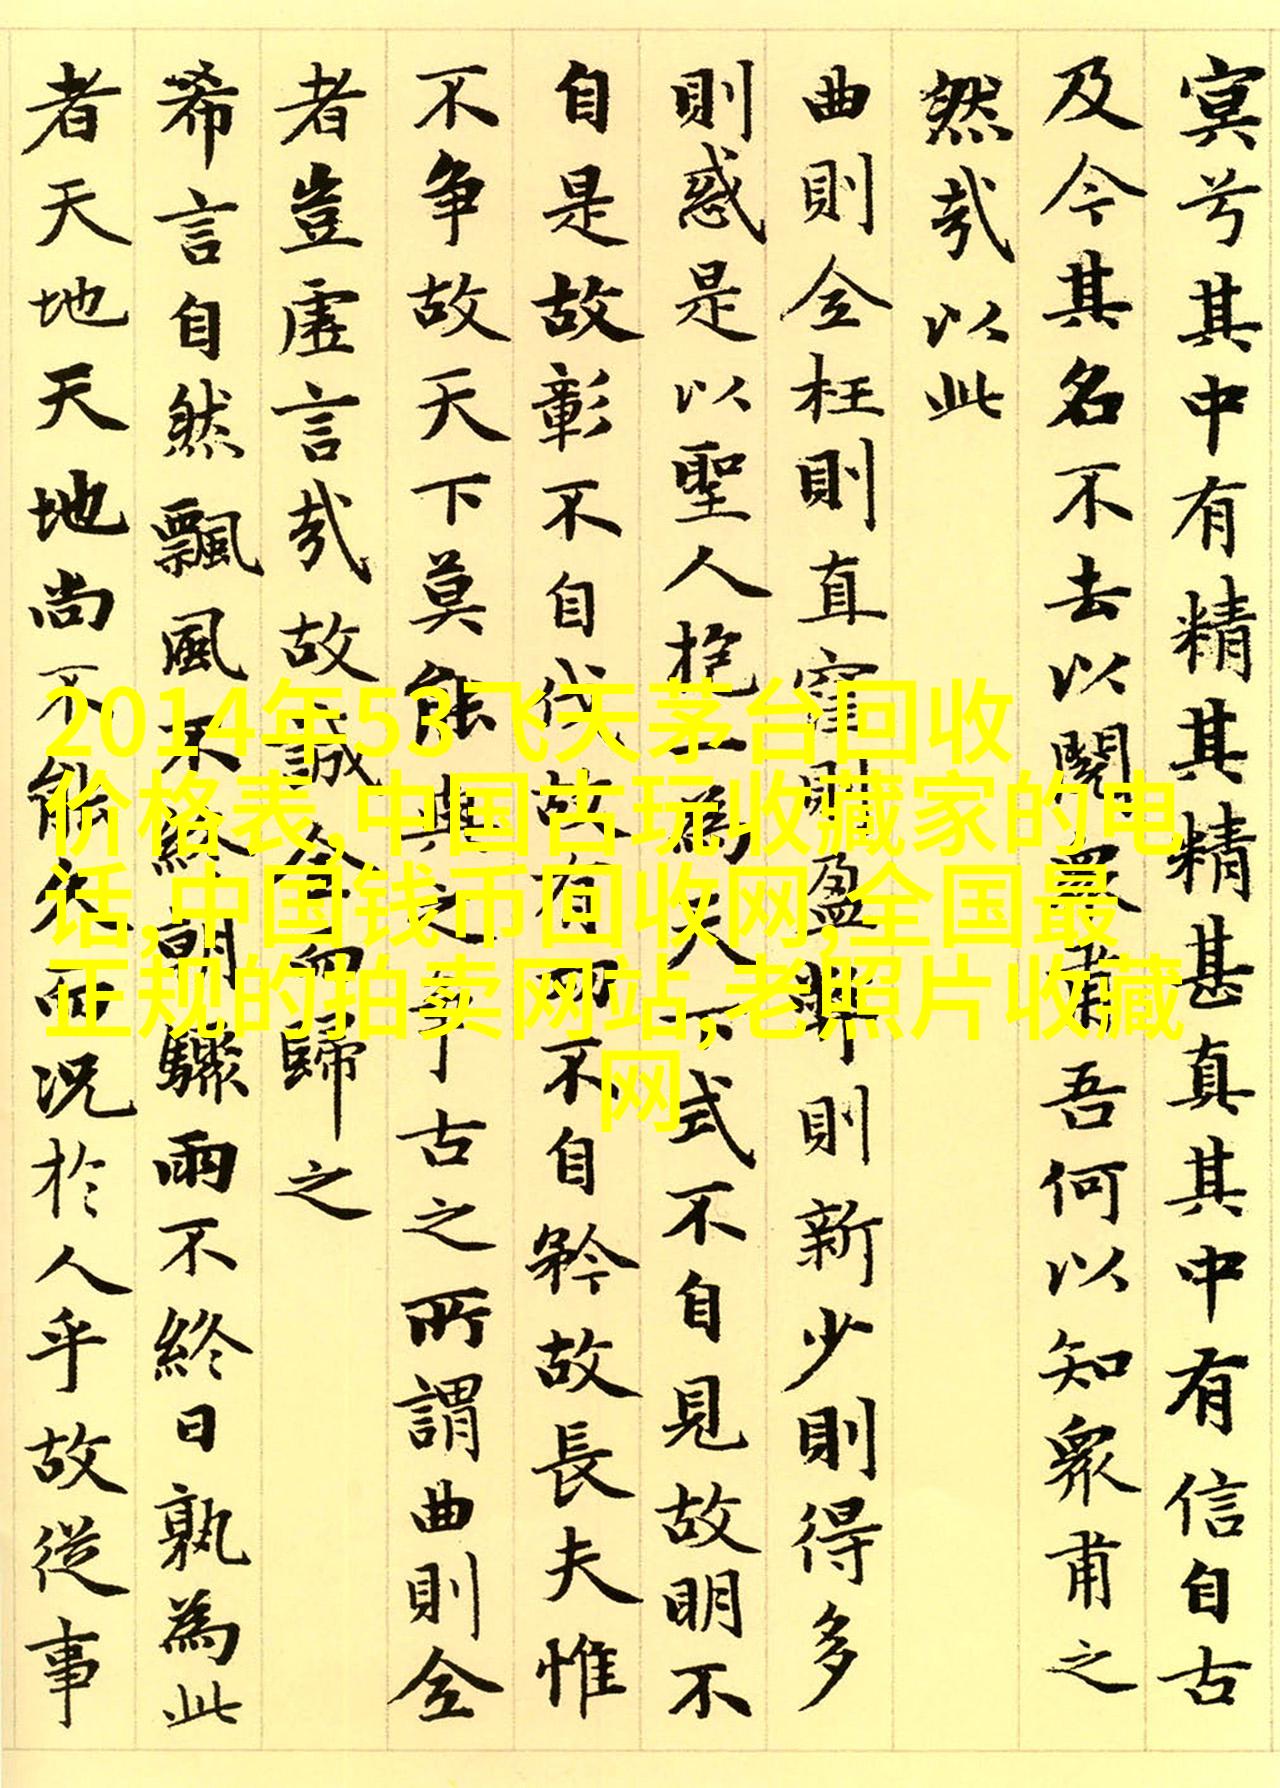 冥兮其中有精其精甚真其中有信自古
及今其名不去以閱眾甫吾何以知眾甫之
然哉以此
曲則全枉則直窪則盈弊則新少則得多
則惑是以聖人抱一為天下式不自見故明不
自是故彰不自伐故有功不自矜故長夫惟
不争故天下莫能與之争古之所謂曲則全
者豈虛言哉故誠全而歸之
希言自然飄風不終朝驟雨不終日孰為此
者天地天地尚不能久而況於人乎故從事
2014年53飞天茅台回收
价格表,中国古玩收藏家的电
话,中国钱币回收网,全国最
正规的拍卖网站,老照片收藏
网